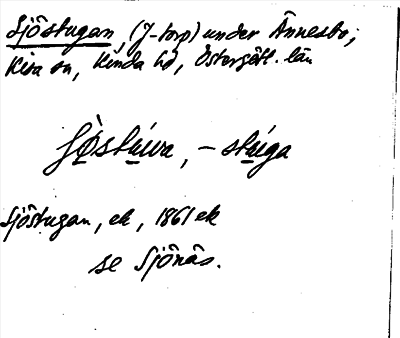 Sjöstugan, (J-torp) under Ånnesbo;
Kisa sn, Kinda hd, Östergötl. län
ʃö̀stúwa, – stúiga
Sjöstugan, ek, 1861 ek
se Sjönäs.